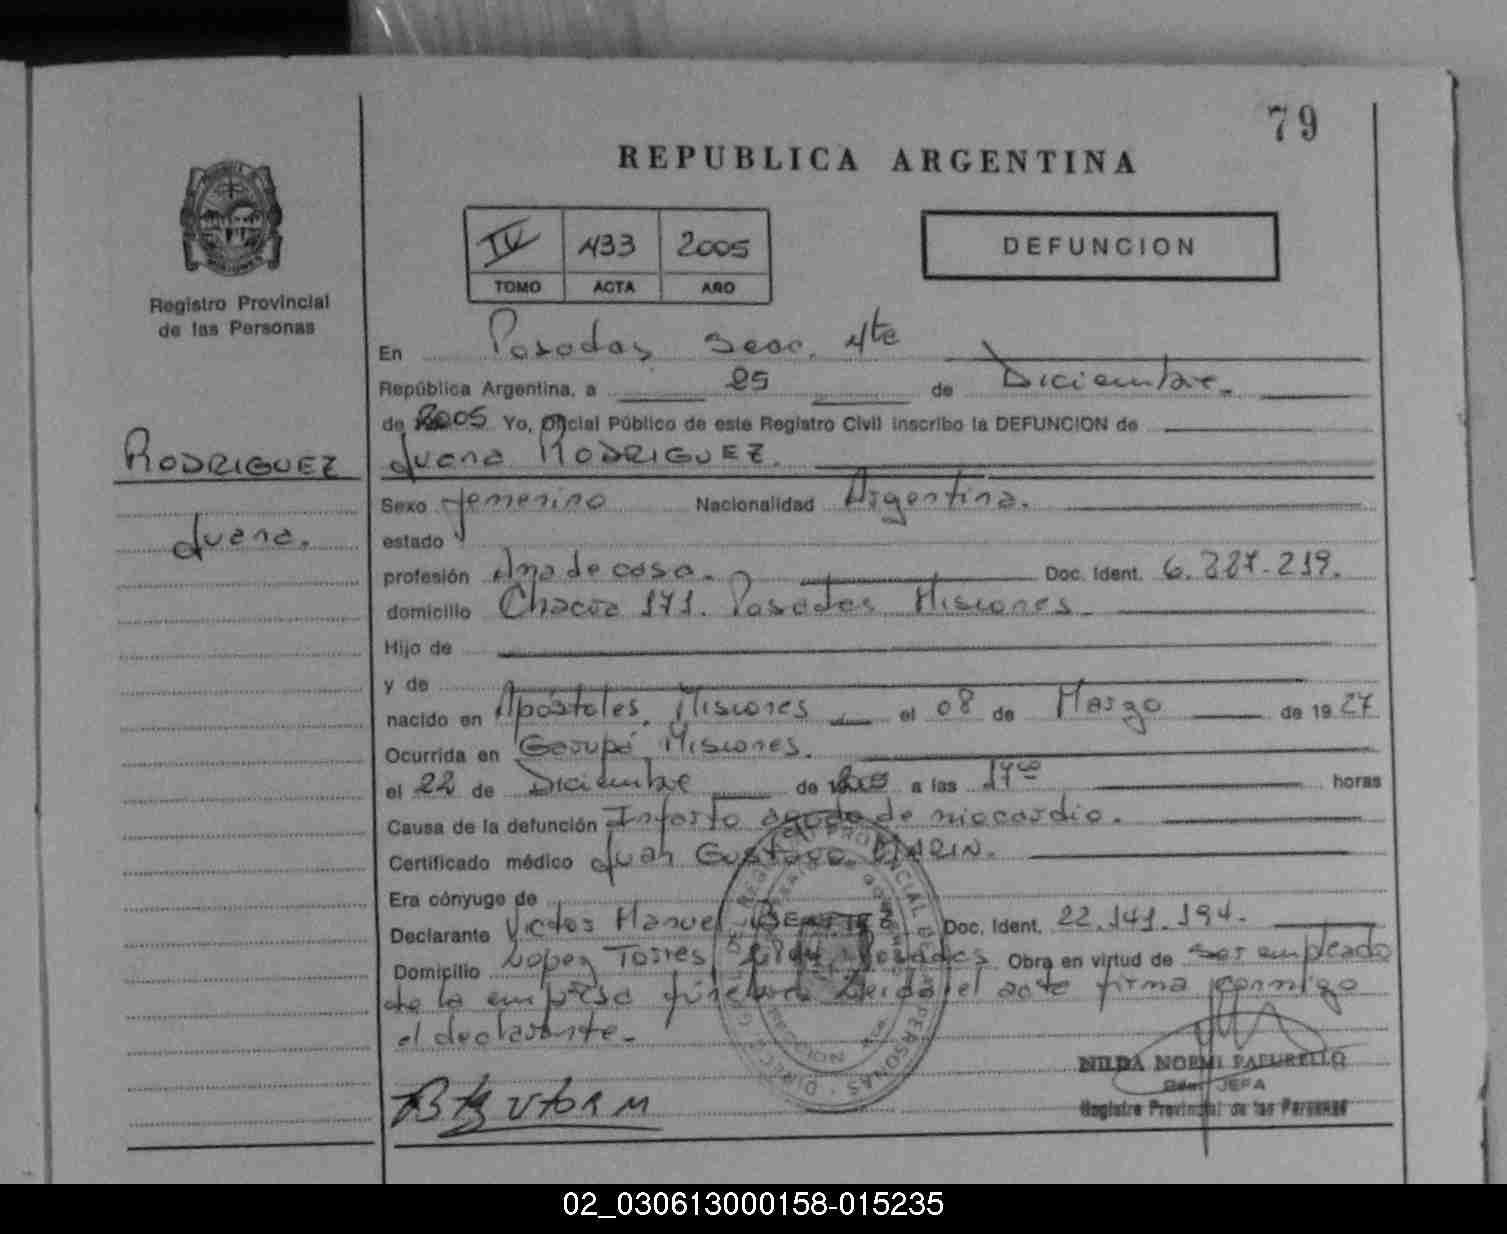 79
REPUBLICA ARGENTINA
IV 433 2005
TOMO ACTA AÑO
DEFUNCION
Registro Provincial
de las Personas
En Posadas Secc. 4te
República Argentina, a 25 de Diciembre.
de 2005 Yo, Oficial Público de este Registro Civil inscribo la DEFUNCION de
RODRIGUEZ
Juana RODRIGUEZ.
Juana.
Sexo femenino Nacionalidad Argentina.
estado
profesión Ama de casa. Doc. Ident. 6.227.219.
domicilio Chacra 171. Posadas Misiones
Hijo de
y de
nacido en Apóstoles, Misiones el 08 de Marzo de 1927
Ocurrida en Garupá Misiones.
el 22 de Diciembre de a las 17 horas
Causa de la defunción Infarto agudo de miocardio.
Certificado médico Juan Gustavo MARIN.
Era cónyuge de
Declarante Victor Manuel Doc. Ident. 22.141.194.
Domicilio Lopez Torres Posadas Obra en virtud de ser empleado
de la empresa fúnebre Leida el acte firma conmigo
el declarante.
NILDA NORMI
JEFA
Registro Provincial de las Personas
02_030613000158-015235